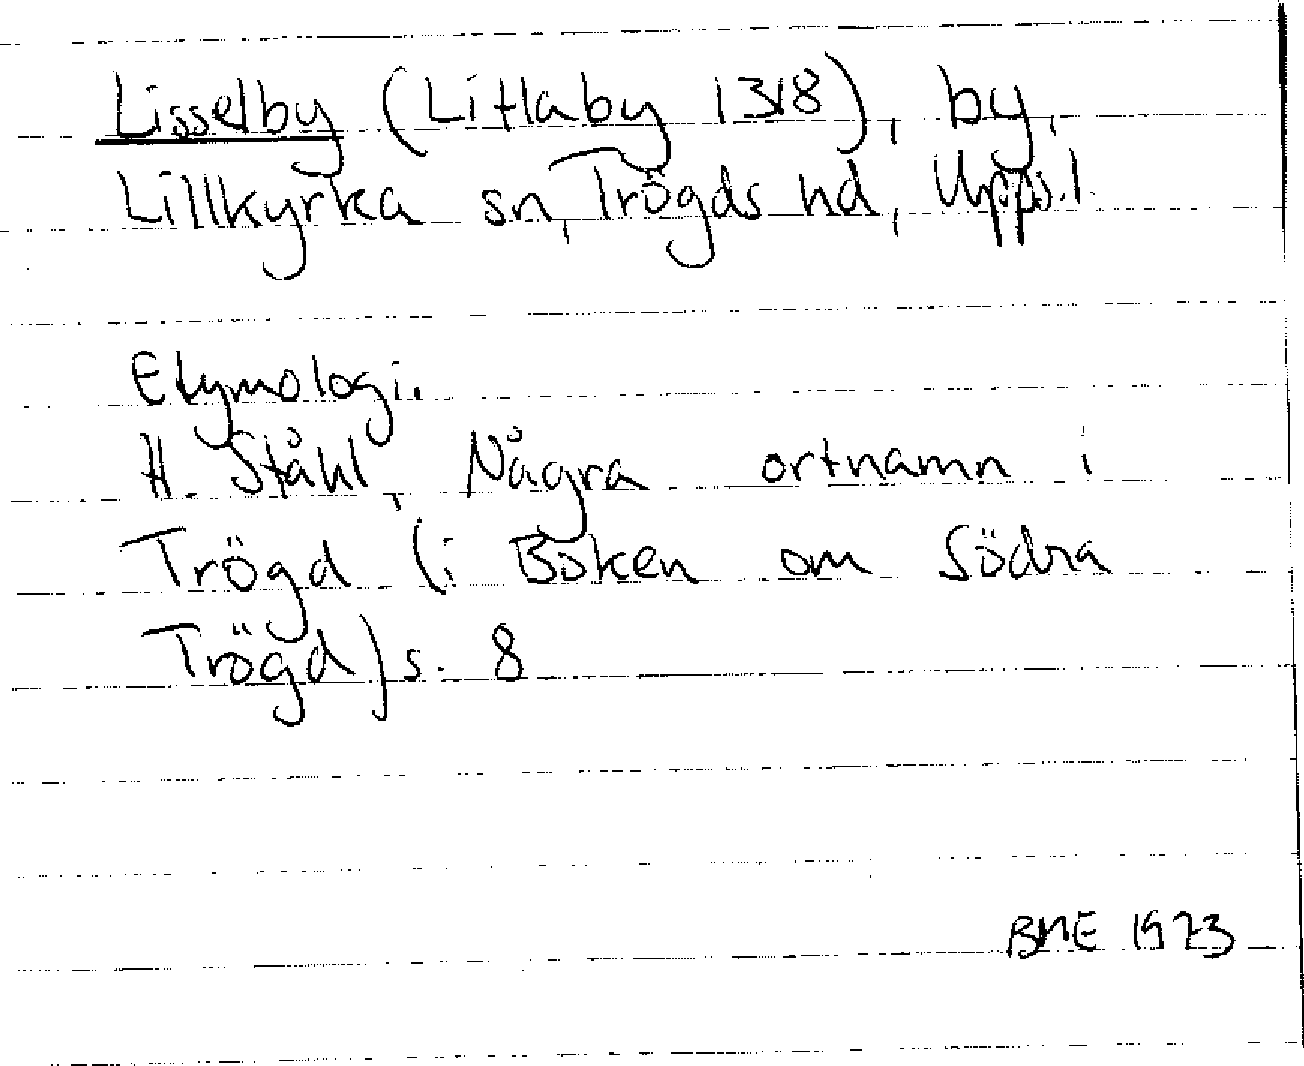 Lisselby (Litlaby 1318), by,
Lillkyrka sn, Trögds hd, Upps.l.
Etymologi.
H. Ståhl, Några ortnamn i
Trögd (i Boken om Södra
Trögd) s. 8
BME 1973